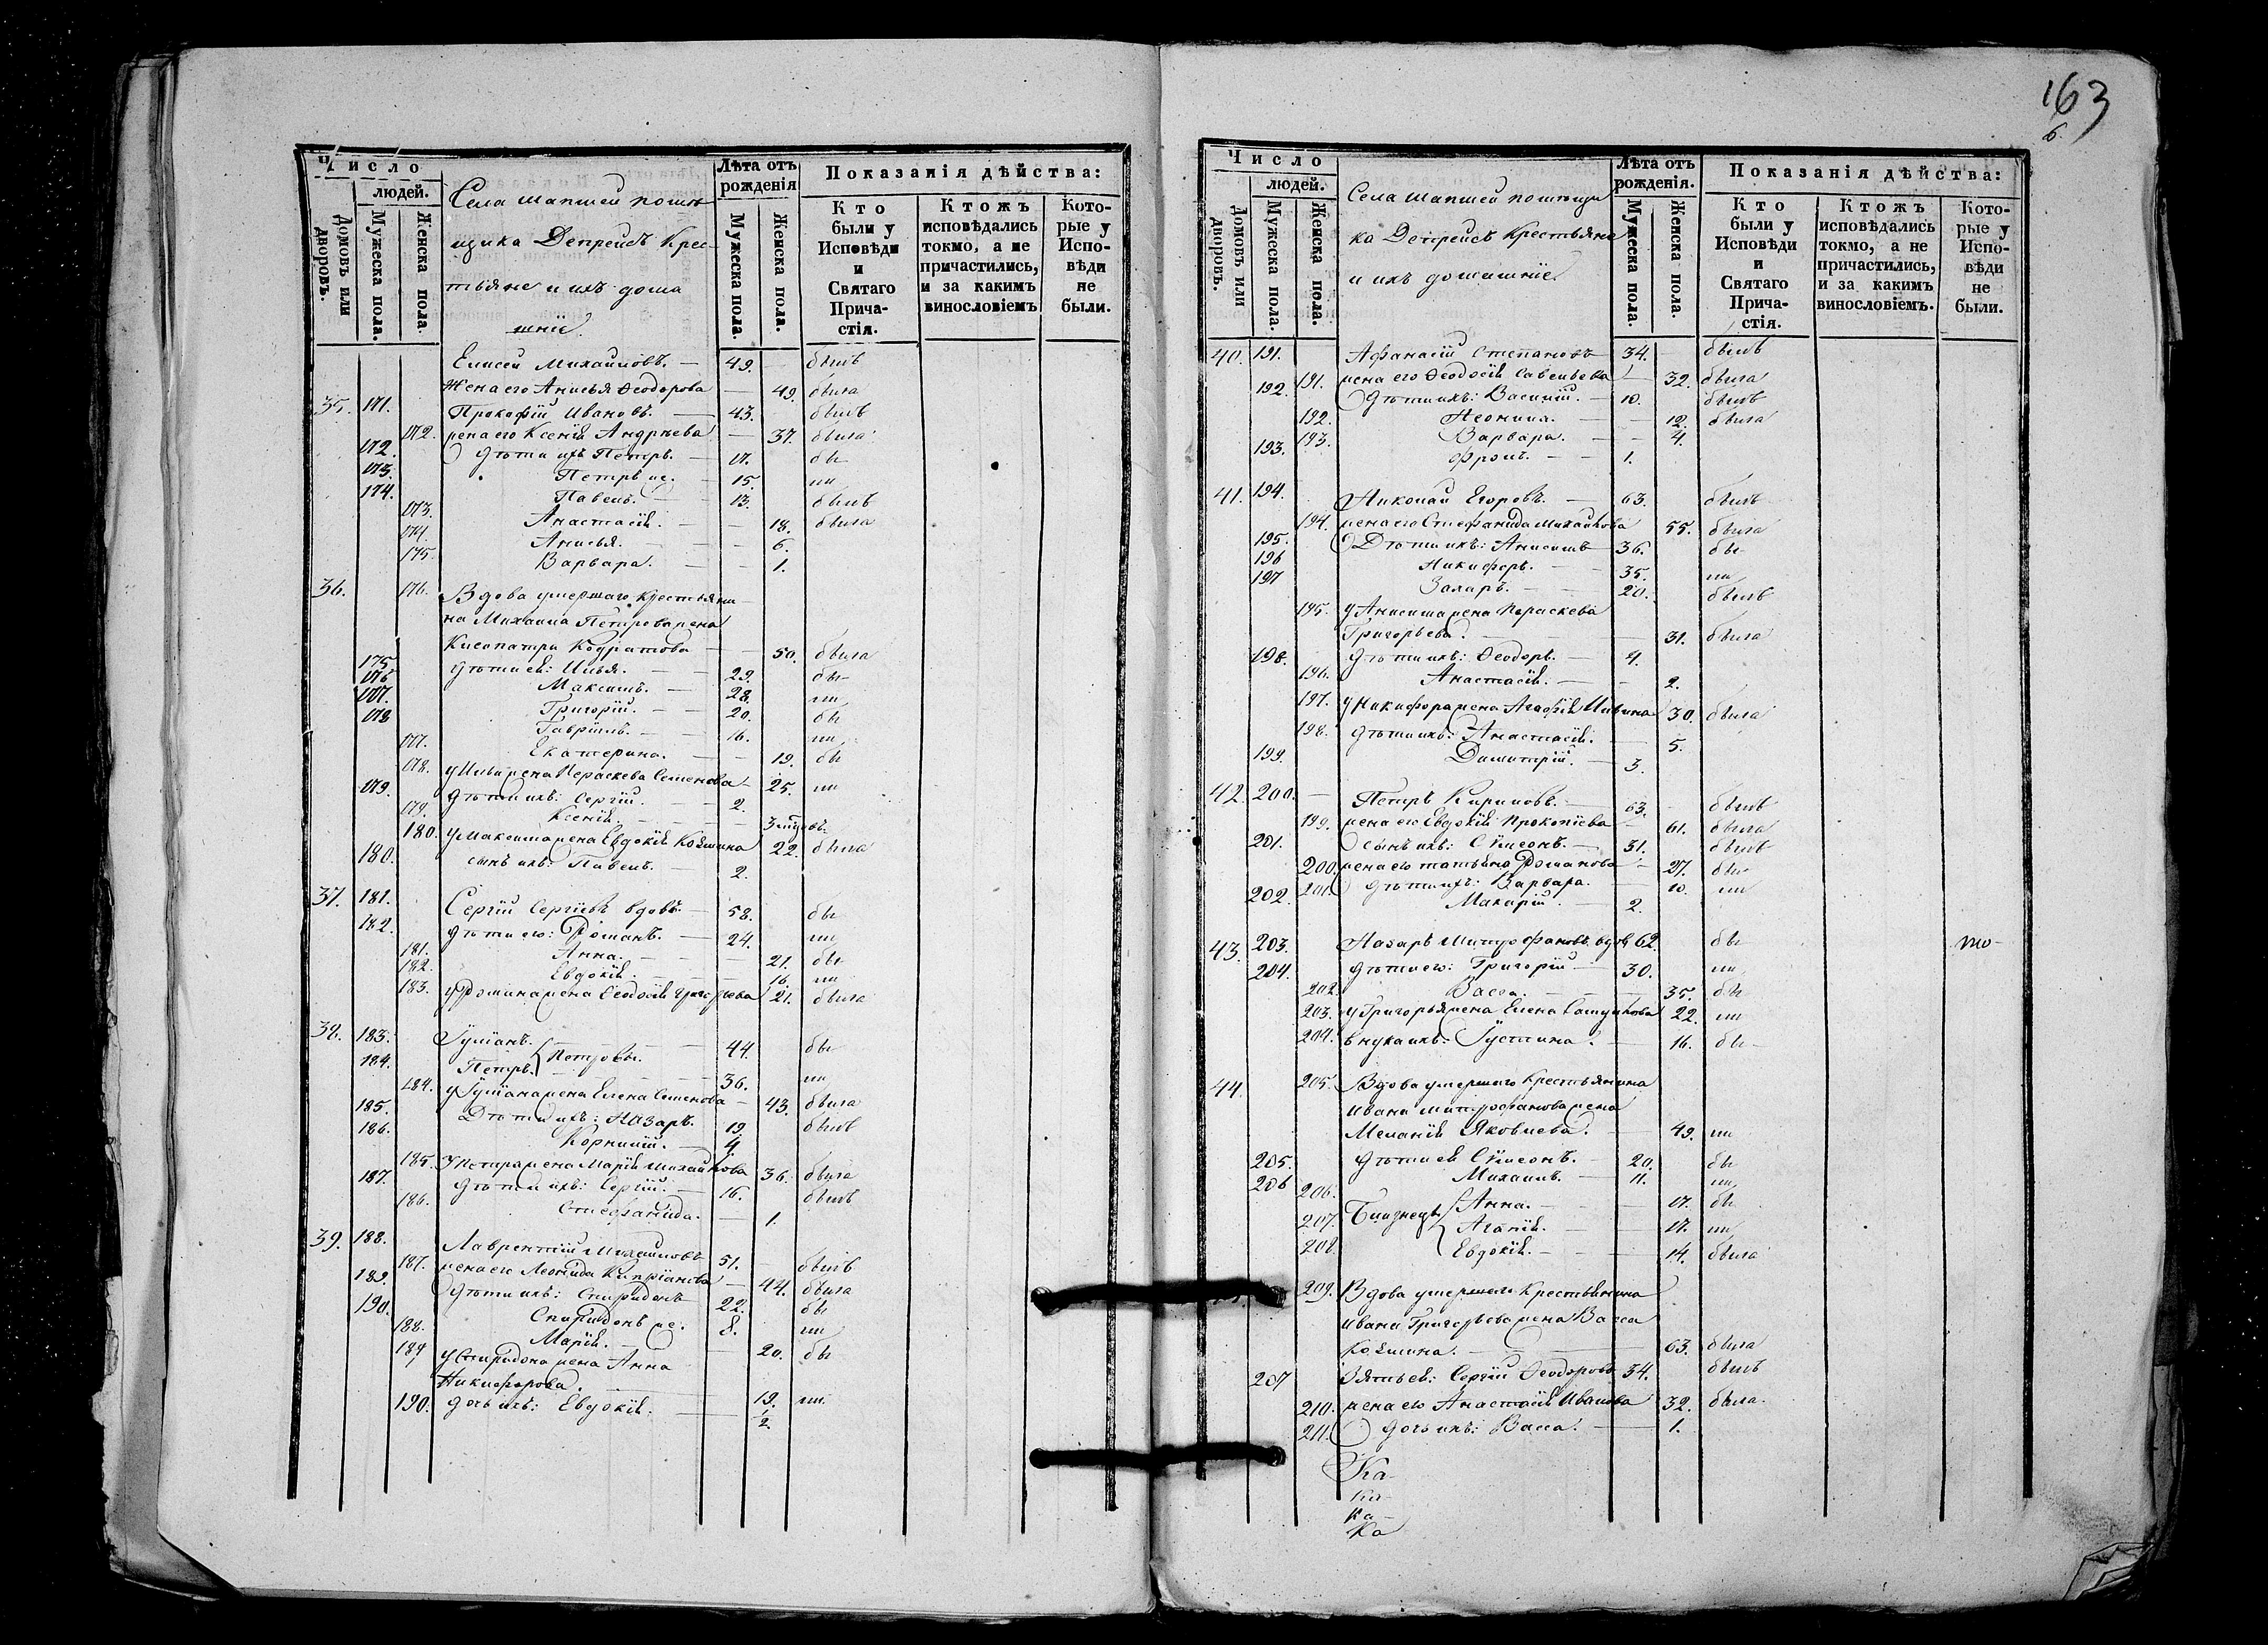 163
Число
людей.
Домовъ или дворовъ.
Мужеска пола.
Женска пола.
Села Шапшей помѣ
щика Депрейсъ Крес
тьяне и ихъ дома
шніе
Лѣта отъ рожденія
Мужеска пола.
Женска пола.
Показанія дѣйства:
Кто были у Исповѣди и Святаго Прича-стія.
Ктожъ исповѣдались токмо, а не причастились, и за какимъ винословіемъ
Кото-рые у Испо-вѣди не были.
Елисей Михайловъ. 49. былъ
Жена его Анисья Ѳеодорова 49. была
35. 171. Прокофій Ивановъ. 43. былъ
172. жена его Ксенія Андрѣева 37. была
172. дѣти ихъ Петръ. 17. бы
173. Петръ же. 15. ли
174. Павелъ. 13. былъ
173. Анастасія. 18. была
174. Анисья. 6.
175. Варвара. 1.
36. 176. Вдова умершаго крестьяни
на Михаила Петрова жена
Клеопатра Кодратова 50. была
175 дѣти ея: Илья. 29. бы
176 Максимъ. 28. ли
177. Григорій. 20. бы
178 Гавріилъ. 16. ли
177. Екатерина. 19. бы
178. у Ильи жена Параскева Семенова 25. ли
179. дѣти ихъ: Сергій. 2.
179. Ксенія.
180. у Максима жена Евдокія Козмина 22. была
180. сынъ ихъ: Павелъ. 2.
37. 181. Сергій Сергіевъ вдовъ. 58. бы
182. дѣти его: Романъ. 24. ли
181. Анна. 21. бы
182. Евдокія. 16. ли
183. у Романа жена Ѳеодосія Григорьева 21. была
38. 183. Іуліанъ. 44. бы
184. Петръ. Петровы. 36. ли
184. у Іуліана жена Елена Семенова 43. была
185. Дѣти ихъ: Назаръ. 19. былъ
186. Корнилій. 4.
185. У Петра жена Марія Михайлова 36. была
187. дѣти ихъ: Сергій. 16. былъ
186. Стефанида. 1.
39. 188. Лаврентій Михайловъ 51. былъ
187. жена его Леонида Кипріанова 44. была
189. дѣти ихъ: Спиридонъ 22. бы
190. Спиридонъ же. 8. ли
188. Марія. 20. бы
189 у Спиридона жена Анна
Никифорова. 19. ли
190. дочь ихъ: Евдокія. 1/2.
Число
людей.
Домовъ или дворовъ.
Мужеска пола.
Женска пола.
Села Шапшей помѣщи
ка Депрейсъ крестьяне
и ихъ домашніе
Лѣта отъ рожденія.
Мужеска пола.
Женска пола.
Показанія дѣйства:
Кто были у Исповѣди и Святаго Прича-стія.
Ктожъ исповѣдались токмо, а не причастились, и за какимъ винословіемъ.
Кото-рые у Испо-вѣди не были.
40. 191. Афанасій Степановъ 34. былъ
191. жена его Ѳеодосія Савельева 32. была
192. Дѣти ихъ: Василій. 10. былъ
192. Неонила. 12. была
193. Варвара. 4.
193. Фролъ. 1.
41. 194. Николай Егоровъ. 63. былъ
194. жена его Стефанида Михайлова 55. была
195. Дѣти ихъ: Анисимъ 36. бы
196 Никифоръ. 35. ли
197 Захаръ. 20. былъ
195. У Анисима жена Параскева
Григорьева. 31. была
198. дѣти ихъ: Ѳеодоръ. 4.
196. Анастасія. 2.
197. у Никифора жена Агафія Ильина 30. была
198. дѣти ихъ: Анастасія. 5.
199. Димитрій. 3.
42. 200. Петръ Кириловъ. 63. былъ
199. жена его Евдокія Прокопіева 61. была
201. сынъ ихъ: Сѷмеонъ. 31. былъ
200. жена его Татьяна Романова 27. бы
201. дѣти ихъ: Варвара. 10. ли
202. Макарій. 2.
43. 203. Назаръ Митрофановъ вдовъ 62. бы
204. дѣти его: Григорій 30. ли
202. Васса. 35. бы
203. у Григорья жена Елена Самуилова 22. ли
204. внука ихъ: Іустина. 16. бы
44. 205. Вдова умершаго крестьянина
Ивана Митрофанова жена
Меланія Яковлева. 49. ли
205. дѣти ея Сѷмеонъ. 20. бы
206 Михаилъ. 11. ли
206. Близнецы Анна. 17. бы
207. Агапія. 17. ли
208. Евдокія. 14. была
209. Вдова умершаго крестьянина
Ивана Григорьева жена Васса
Козмина. 63. была
207 Зять ея: Сергій Ѳеодоровъ 34. былъ
210. жена его Анастасія Иванова 32. была.
211. дочь ихъ: Васса. 1.
Ка-
Ка-
Ка-
Ка